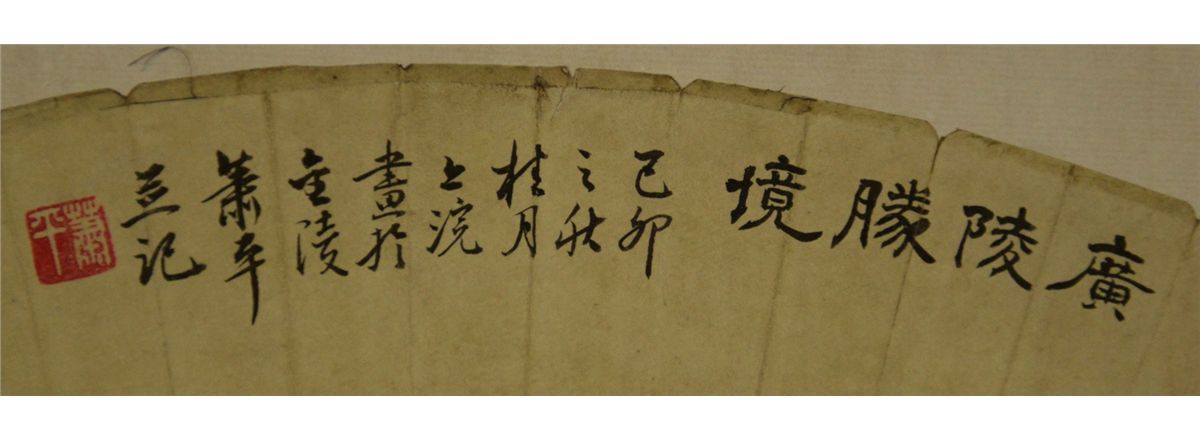 廣陵勝境
己卯
之秋
桂月
上浣
畫於
金陵
蕭平
並記
蕭平